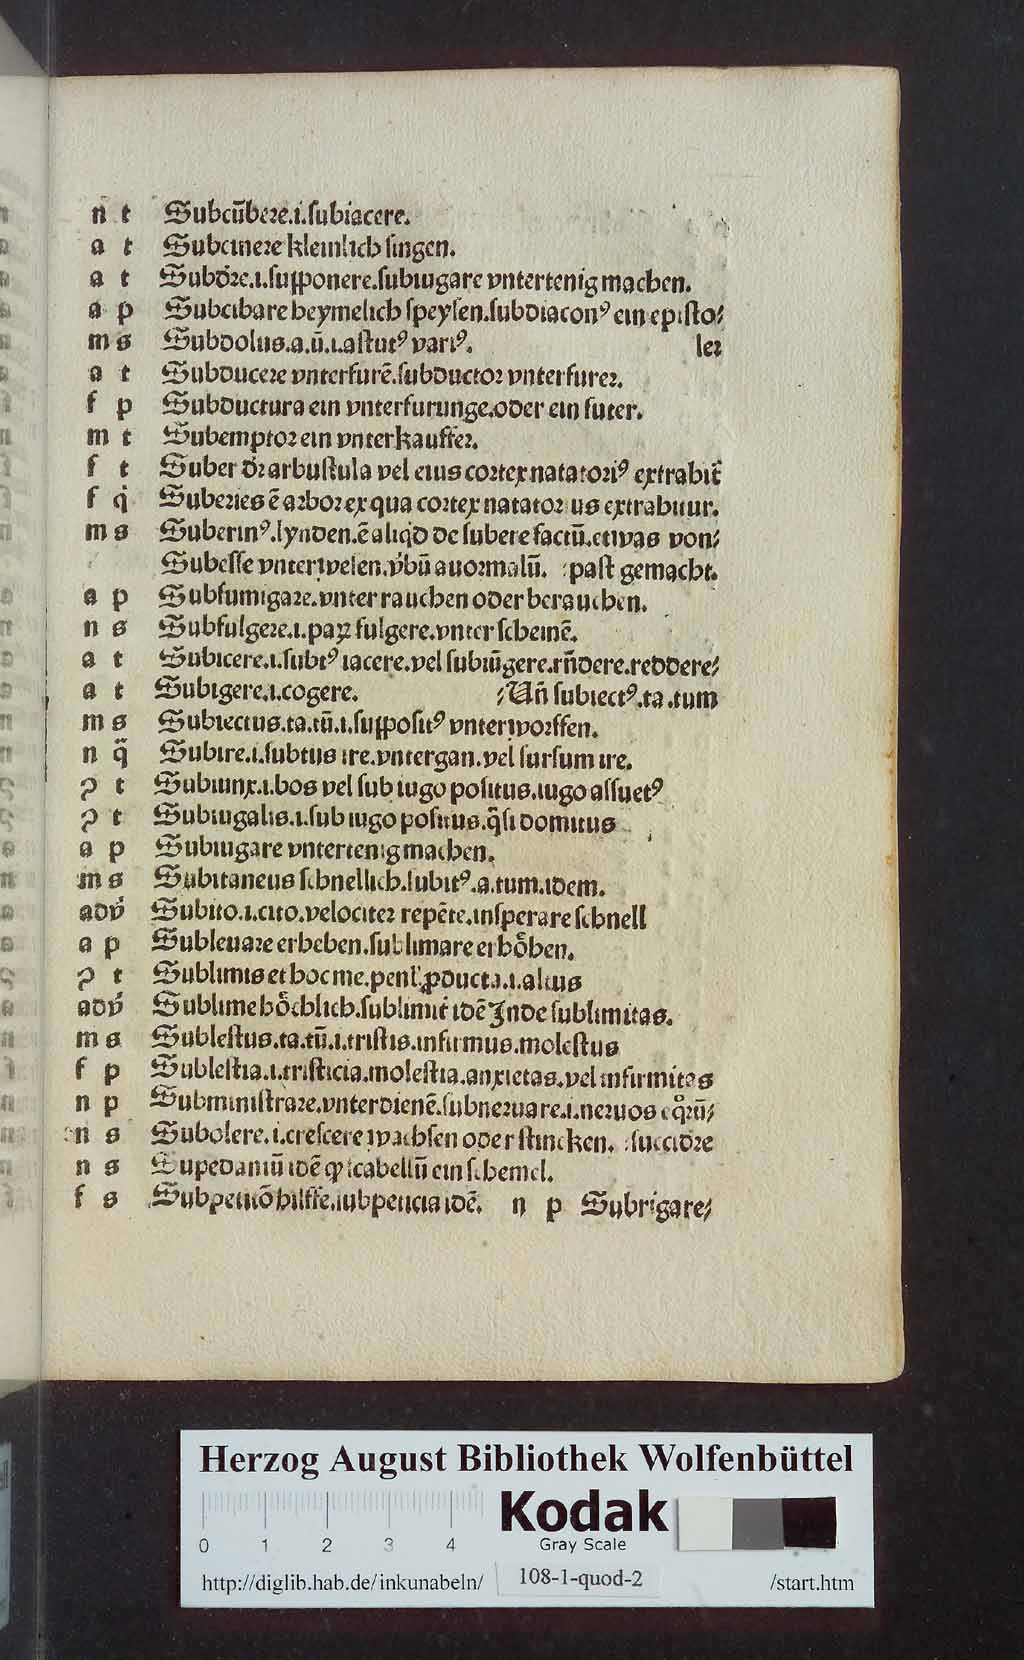 n t Subcūbere.i.subiacere.
a t Subcinere kleinlich singen.
a t Subdr̄e.i.supponere.subiugare vntertenig machen.
a p Subcibare heymelich speysen.subdiaconꝰ ein episto⸗
m s Subdolus.a.ū.i.astutꝰ variꝰ. ler
a t Subducere vnterfurē.subductor vnterfurer.
f p Subductura ein vnterfurunge.oder ein futer.
m t Subemptor ein vnterkauffer.
f t Suber dr̄ arbustula vel eius cortex natatoriꝰ extrahit̄
f q̇ Suberies ē arbor ex qua cortex natator us extrahitur.
m s Suberinꝰ.lynden.ē aliqd̄ de subere factū.etwas von⸗
Subesse vnterwesen.v̄bū anormalū. :past gemacht.
a p Subfumigare.vnter rauchen oder berauchen.
n s Subfulgere.i.paꝝ fulgere.vnter scheinē.
a t Subicere.i.subtꝰ iacere.vel subiūgere.rn̄dere.reddere⸗
a t Subigere.i.cogere. ⸗Un̄ subiectꝰ.ta.tum
m s Subiectus.ta.tū.i.suppositꝰ vnterworffen.
n q̄ Subire.i.subtus ire.vntergan.vel sursum ire.
ꝯ t Subiunx.i.bos vel sub iugo positus.iugo assuetꝰ
ꝯ t Subiugalis.i.sub iugo positus.q̄si domitus
a p Subiugare vntertenig machen.
m s Subitaneus schnellich.subitꝰ.a.tum.idem.
adv̄ Subito.i.cito.velociter repēte.insperare schnell
a p Subleuare erheben.sublimare erhöhen.
ꝯ t Sublimis et hoc me.penl̄.ꝓducta.i.altus
adv̄ Sublime höchlich.sublimit̄ idē Inde sublimitas.
m s Sublestus.ta.tū.i.tristis.infirmus.molestus
f p Sublestia.i.tristicia.molestia.anxietas.vel infirmitas
n p Subministrare.vnterdienē.subneruare.i.neruos eqͦrū⸗
n s Subolere.i.crescere wachsen oder stincken. :succidr̄e
n s Supedaniū idē ꝙ scabellū ein schemel.
f s Subpetitō hilffe.subpeticia idē. n p Subrigare⸗
Herzog August Bibliothek Wolfenbüttel
Kodak
Gray Scale
0 1 2 3 4
http://diglib.hab.de/inkunabeln/ 108-1-quod-2 /start.htm